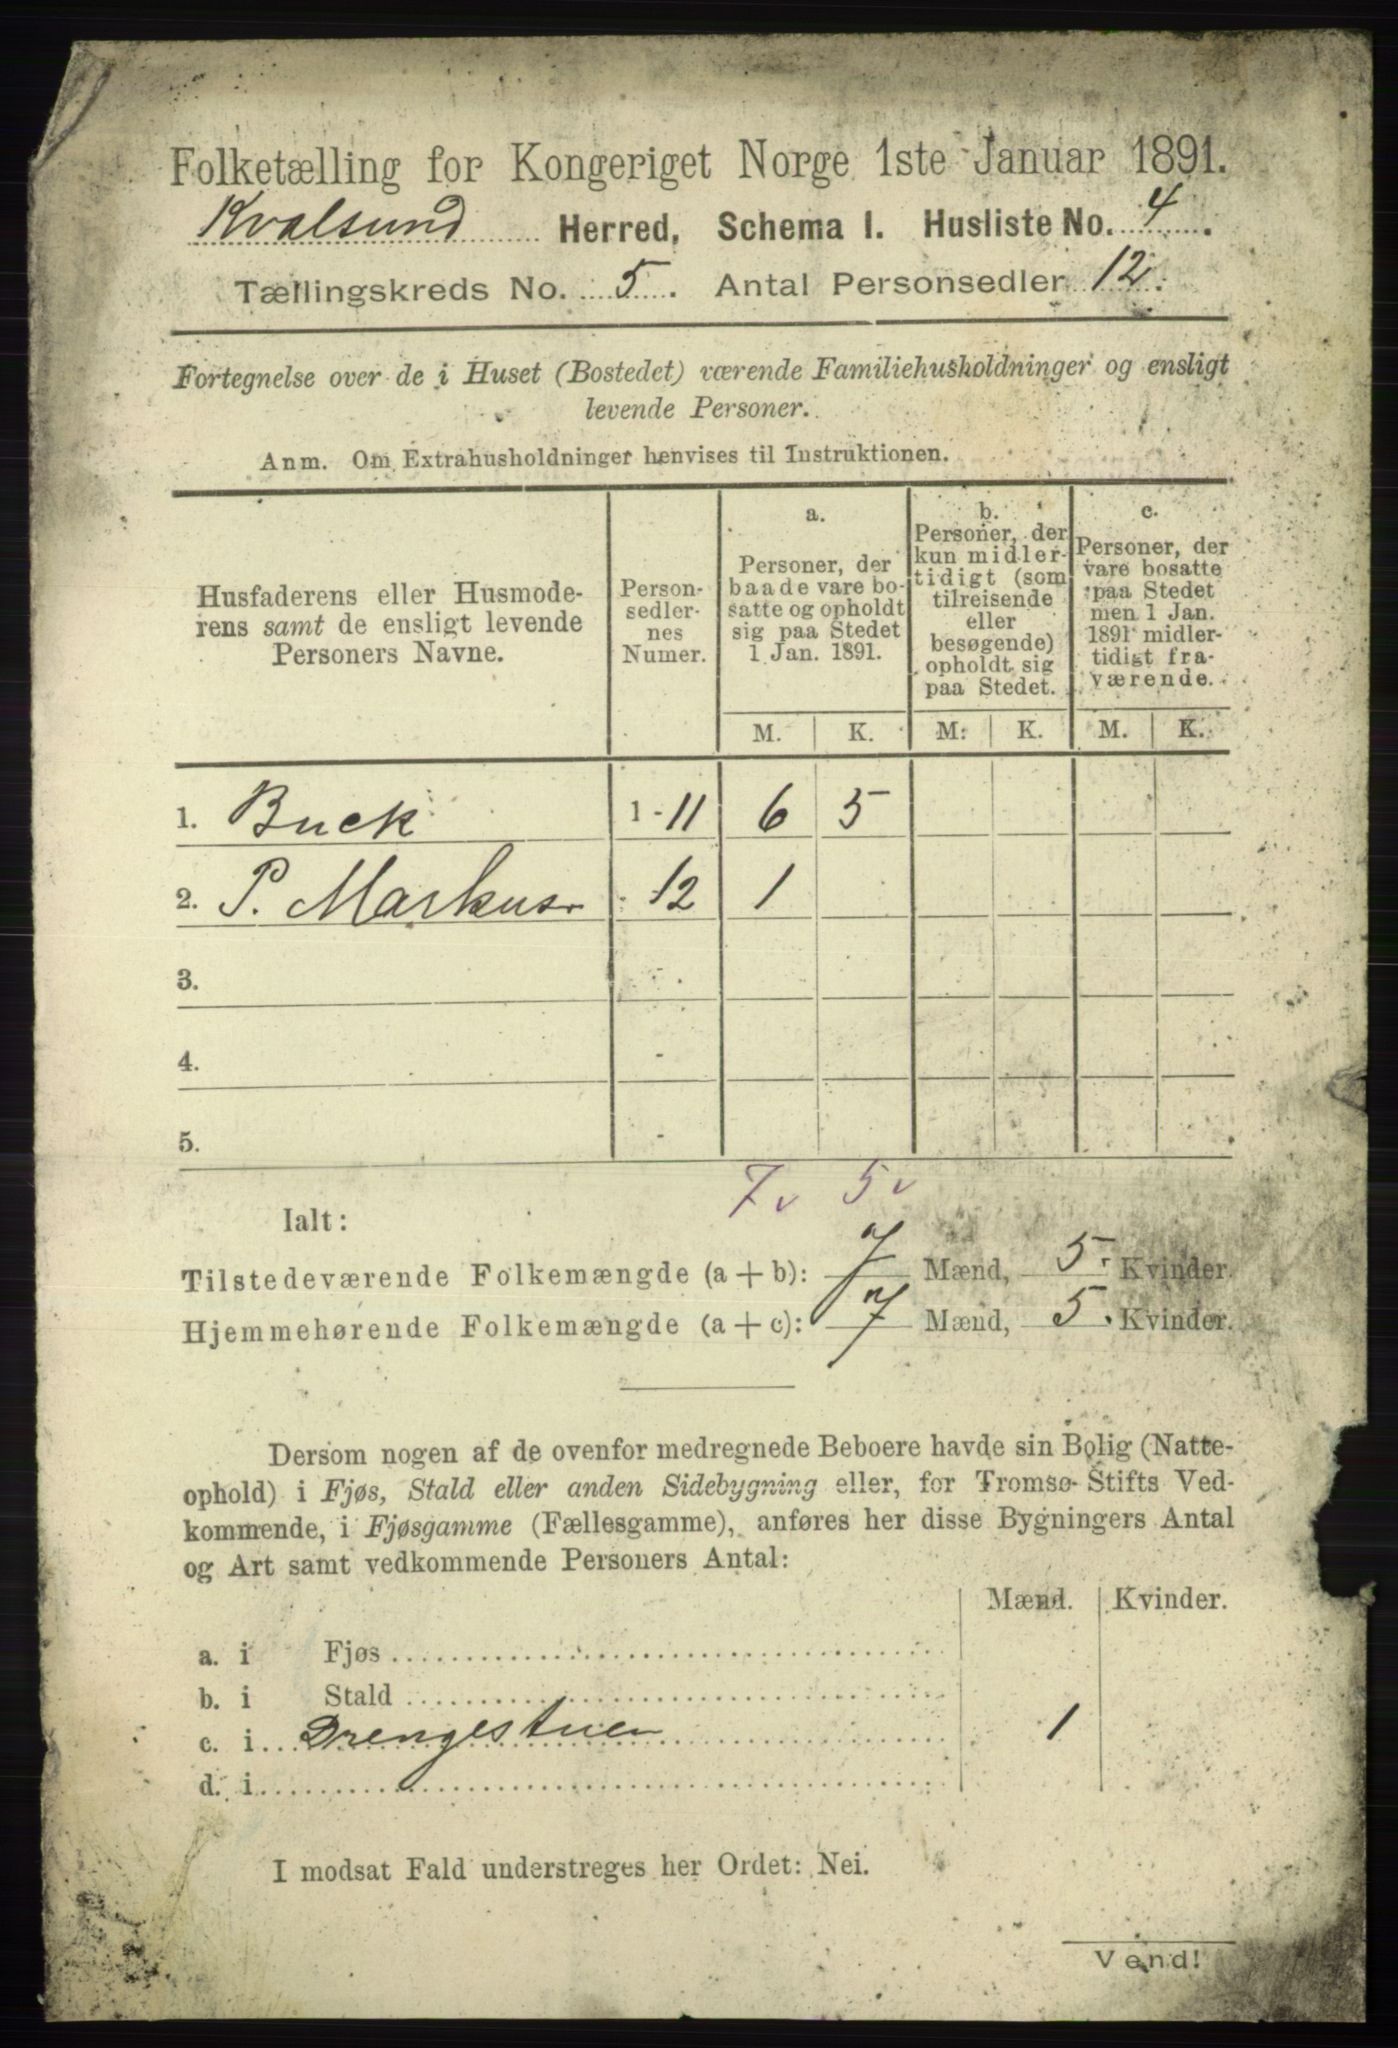 Folketælling for Kongeriget Norge 1ste Januar 1891.
Kvalsund Herred, Schema I. Husliste No. 4.
Tællingskreds No. 5. Antal Personsedler 12.
Fortegnelse over de i Huset (Bostedet) værende Familiehusholdninger og ensligt
levende Personer.
Anm. Om Extrahusholdninger henvises til Instruktionen.
Husfaderens eller Husmode-
rens samt de ensligt levende
Personers Navne.
Person-
sedler-
nes
Numer.
a.
Personer, der
baade vare bo-
satte og opholdt
sig paa Stedet
1 Jan. 1891.
b.
Personer, der
kun midler-
tidigt (som
tilreisende
eller
besøgende)
opholdt sig
paa Stedet.
c.
Personer, der
vare bosatte
paa Stedet
men 1 Jan.
1891 midler-
tidigt fra-
værende.
M. K. M. K. M. K.
1. Buck 1-11 6 5
2. P. Markus. - 12 1
3. -
4. -
5. -
7 v 5 v
Ialt:
Tilstedeværende Folkemængde (a + b): 7 Mænd, 5. Kvinder.
Hjemmehørende Folkemængde (a + c): 7 Mænd, 5. Kvinder.
Dersom nogen af de ovenfor medregnede Beboere havde sin Bolig (Natte-
ophold) i Fjøs, Stald eller anden Sidebygning eller, for Tromsø Stifts Ved-
kommende, i Fjøsgamme (Fællesgamme), anføres her disse Bygningers Antal
og Art samt vedkommende Personers Antal:
Mænd. Kvinder.
a. i Fjøs
b. i Stald
c. i Drengestuen 1
d. i
I modsat Fald understreges her Ordet: Nei.
Vend!